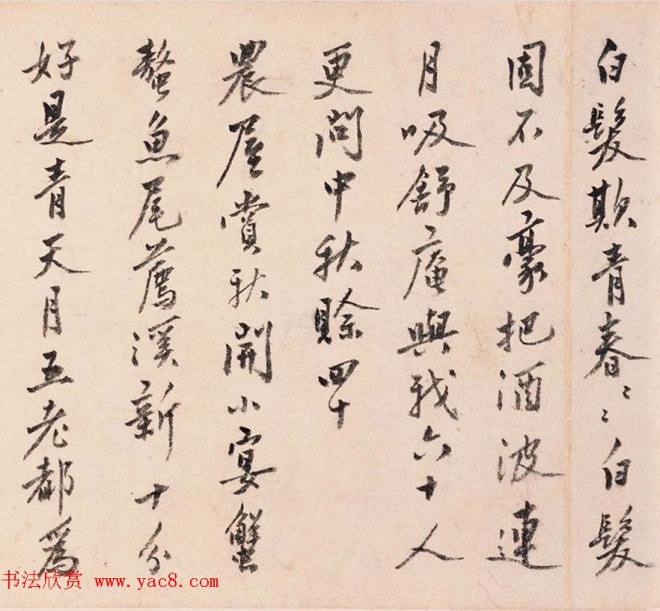 白髮欺青春〻〻白髮
固不及豪把酒波連
月吸舒庵與我六十人
更問中秋賖四十
農屋賞秋開小宴蟹
螯魚尾薦溪新十分
好是青天月五老都為
书法欣赏 www.yac8.com